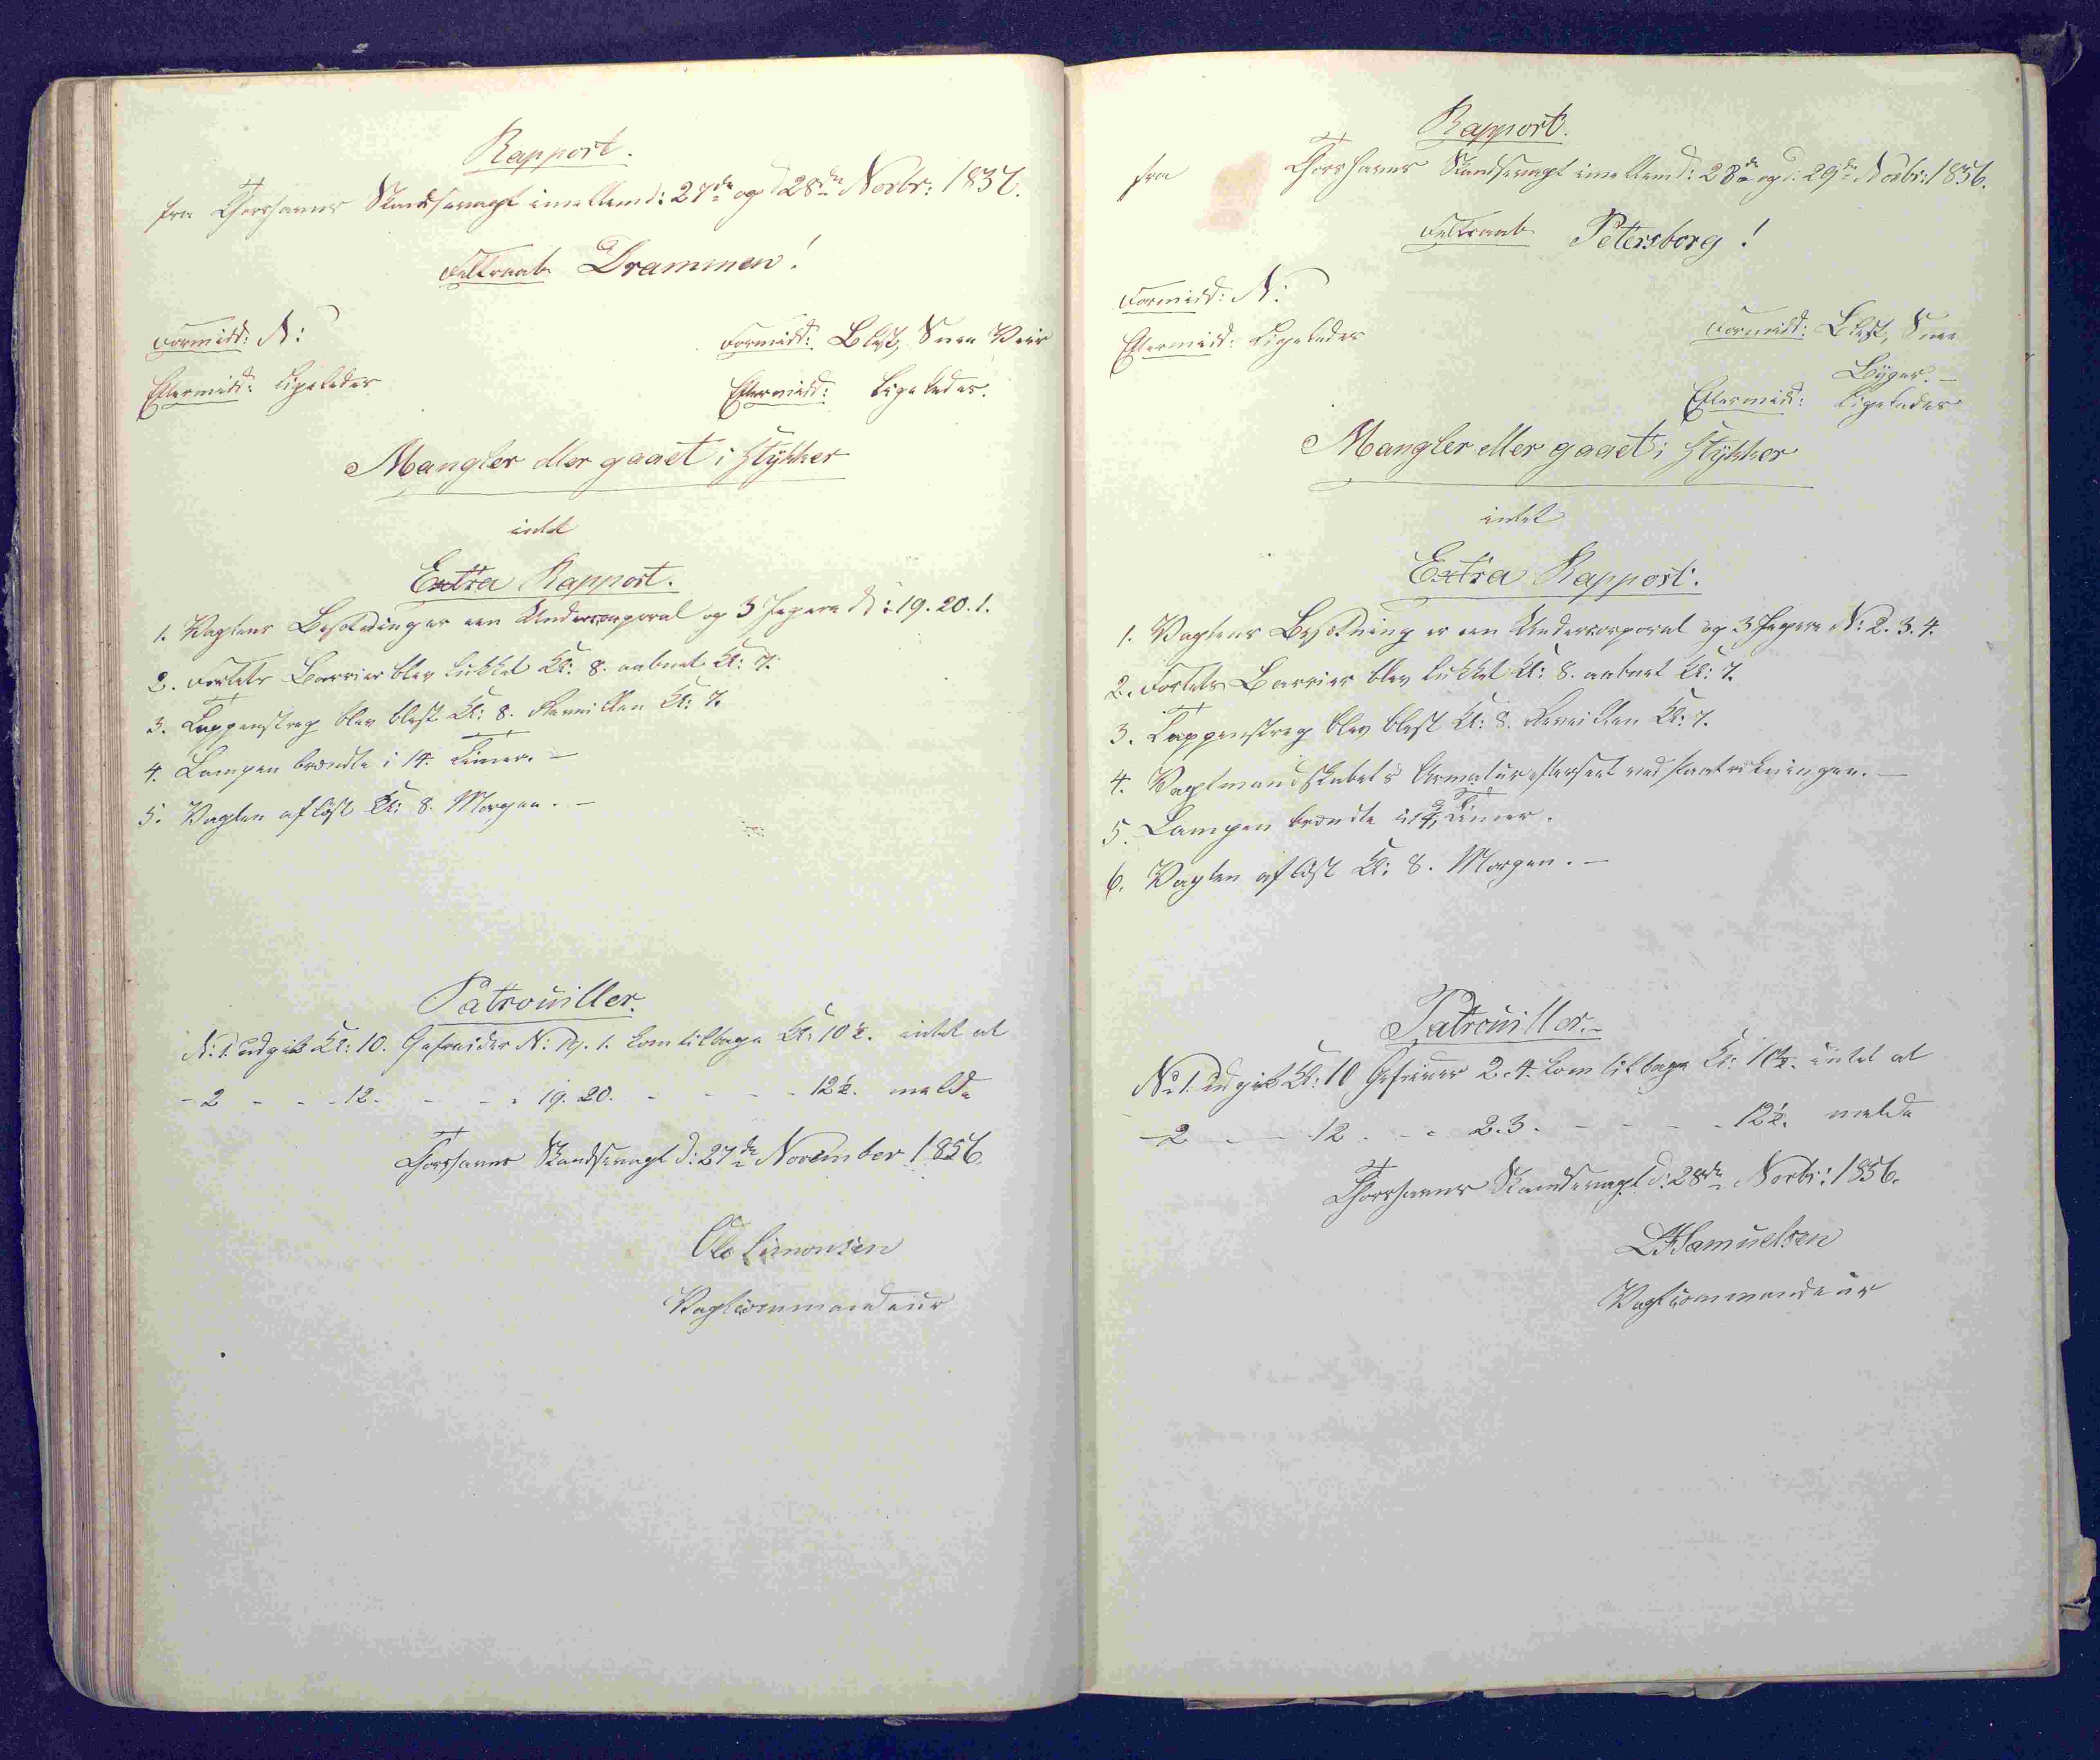 Rapport.
fra Thorshavns Skandsevagt imellem d: 27de og d 28de Novbr: 1856.
Feltraab Drammen!
Formidd: N:
Formidd: Blæst, Snee Veir
Eftermidd: ligeledes
Eftermidd: ligeledes.
Mangler eller gaaet i Stykker
intet
Extra Rapport.
1. Vagtens Besætning er een Undercorporal og 3 Jægere N: 19. 20. 1.
2. Fortets Barrier blev lukket Kl: 8. aabnet Kl: 7.
3. Tappenstreg blev blæst Kl: 8. Reveillen Kl: 7.
4. Lampen brændte i 14 Timer. –
5. Vagten afløst Kl: 8. Morgen. –
Patrouiller.
N: 1. udgik Kl: 10. Gefreider N: 19. 1. kom tilbage Kl: 10½. intet at
- 2 - - 12. - - - 19. 20. - - - - 12½. melde
Thorshavns Skandsevagt d: 27de November 1856.
Ole Simonsen
Vagtcommandeur
Rapport.
fra Thorshavns Skandsevagt imellem d: 28de og d: 29de Novbr: 1856.
Feltraab Petersborg!
Formidd: N:
Eftermidd: ligeledes
Formidd: Blæst, Snee
Byger. –
Eftermidd: ligeledes
Mangler eller gaaet i Stykker
intet
Extra Rapport.
1. Vagtens Besætning er een Undercorporal og 3 Jægere N: 2. 3. 4.
2. Fortets Barrier blev lukket Kl: 8. aabnet Kl: 7.
3. Tappenstreg blev blæst Kl: 8. Reveillen Kl: 7.
4. Vagtmandskabets Armatur efterseet ved Fratrædningen. –
5. Lampen brændte i 14 Timer.
6. Vagten afløst Kl: 8. Morgen. –
Patrouiller. –
N: 1. udgik Kl: 10 Gefreider 2. 4. kom tilbage Kl: 10½. intet at
- 2 - - 12 - - - 2. 3. - - - - 12½. melde
Thorshavns Skandsevagt d: 28de Novbr: 1856.
Samuelsen
Vagtcommandeur